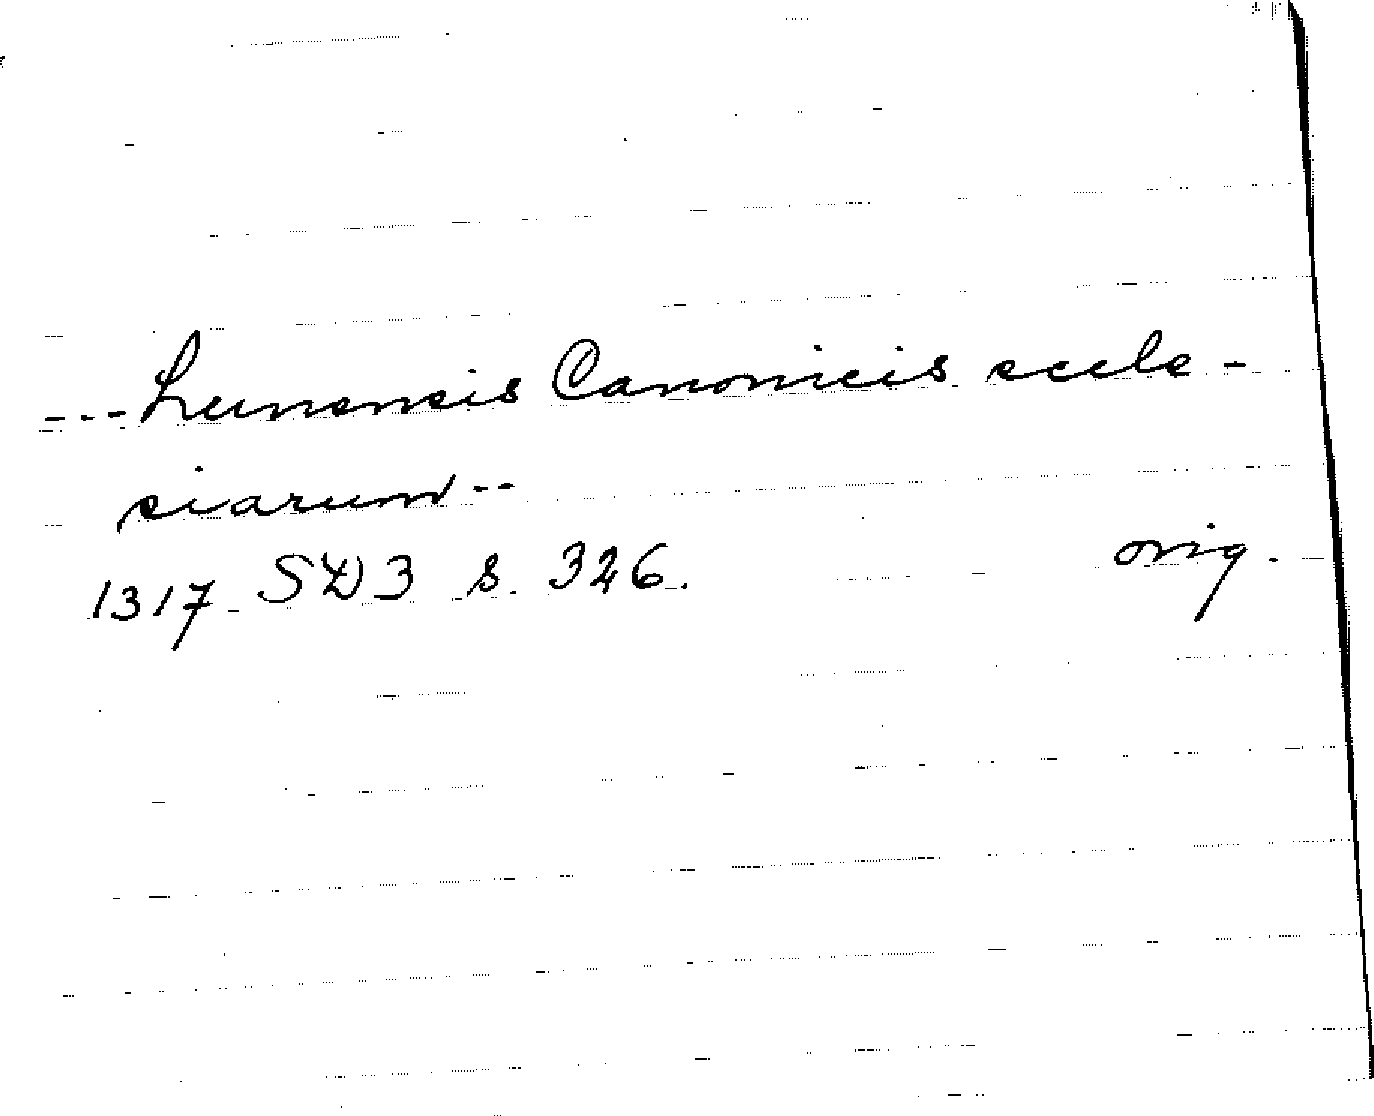 --- Lunensis Canonicis eccle-
siarum --
1317 SD3 s. 326. orig.